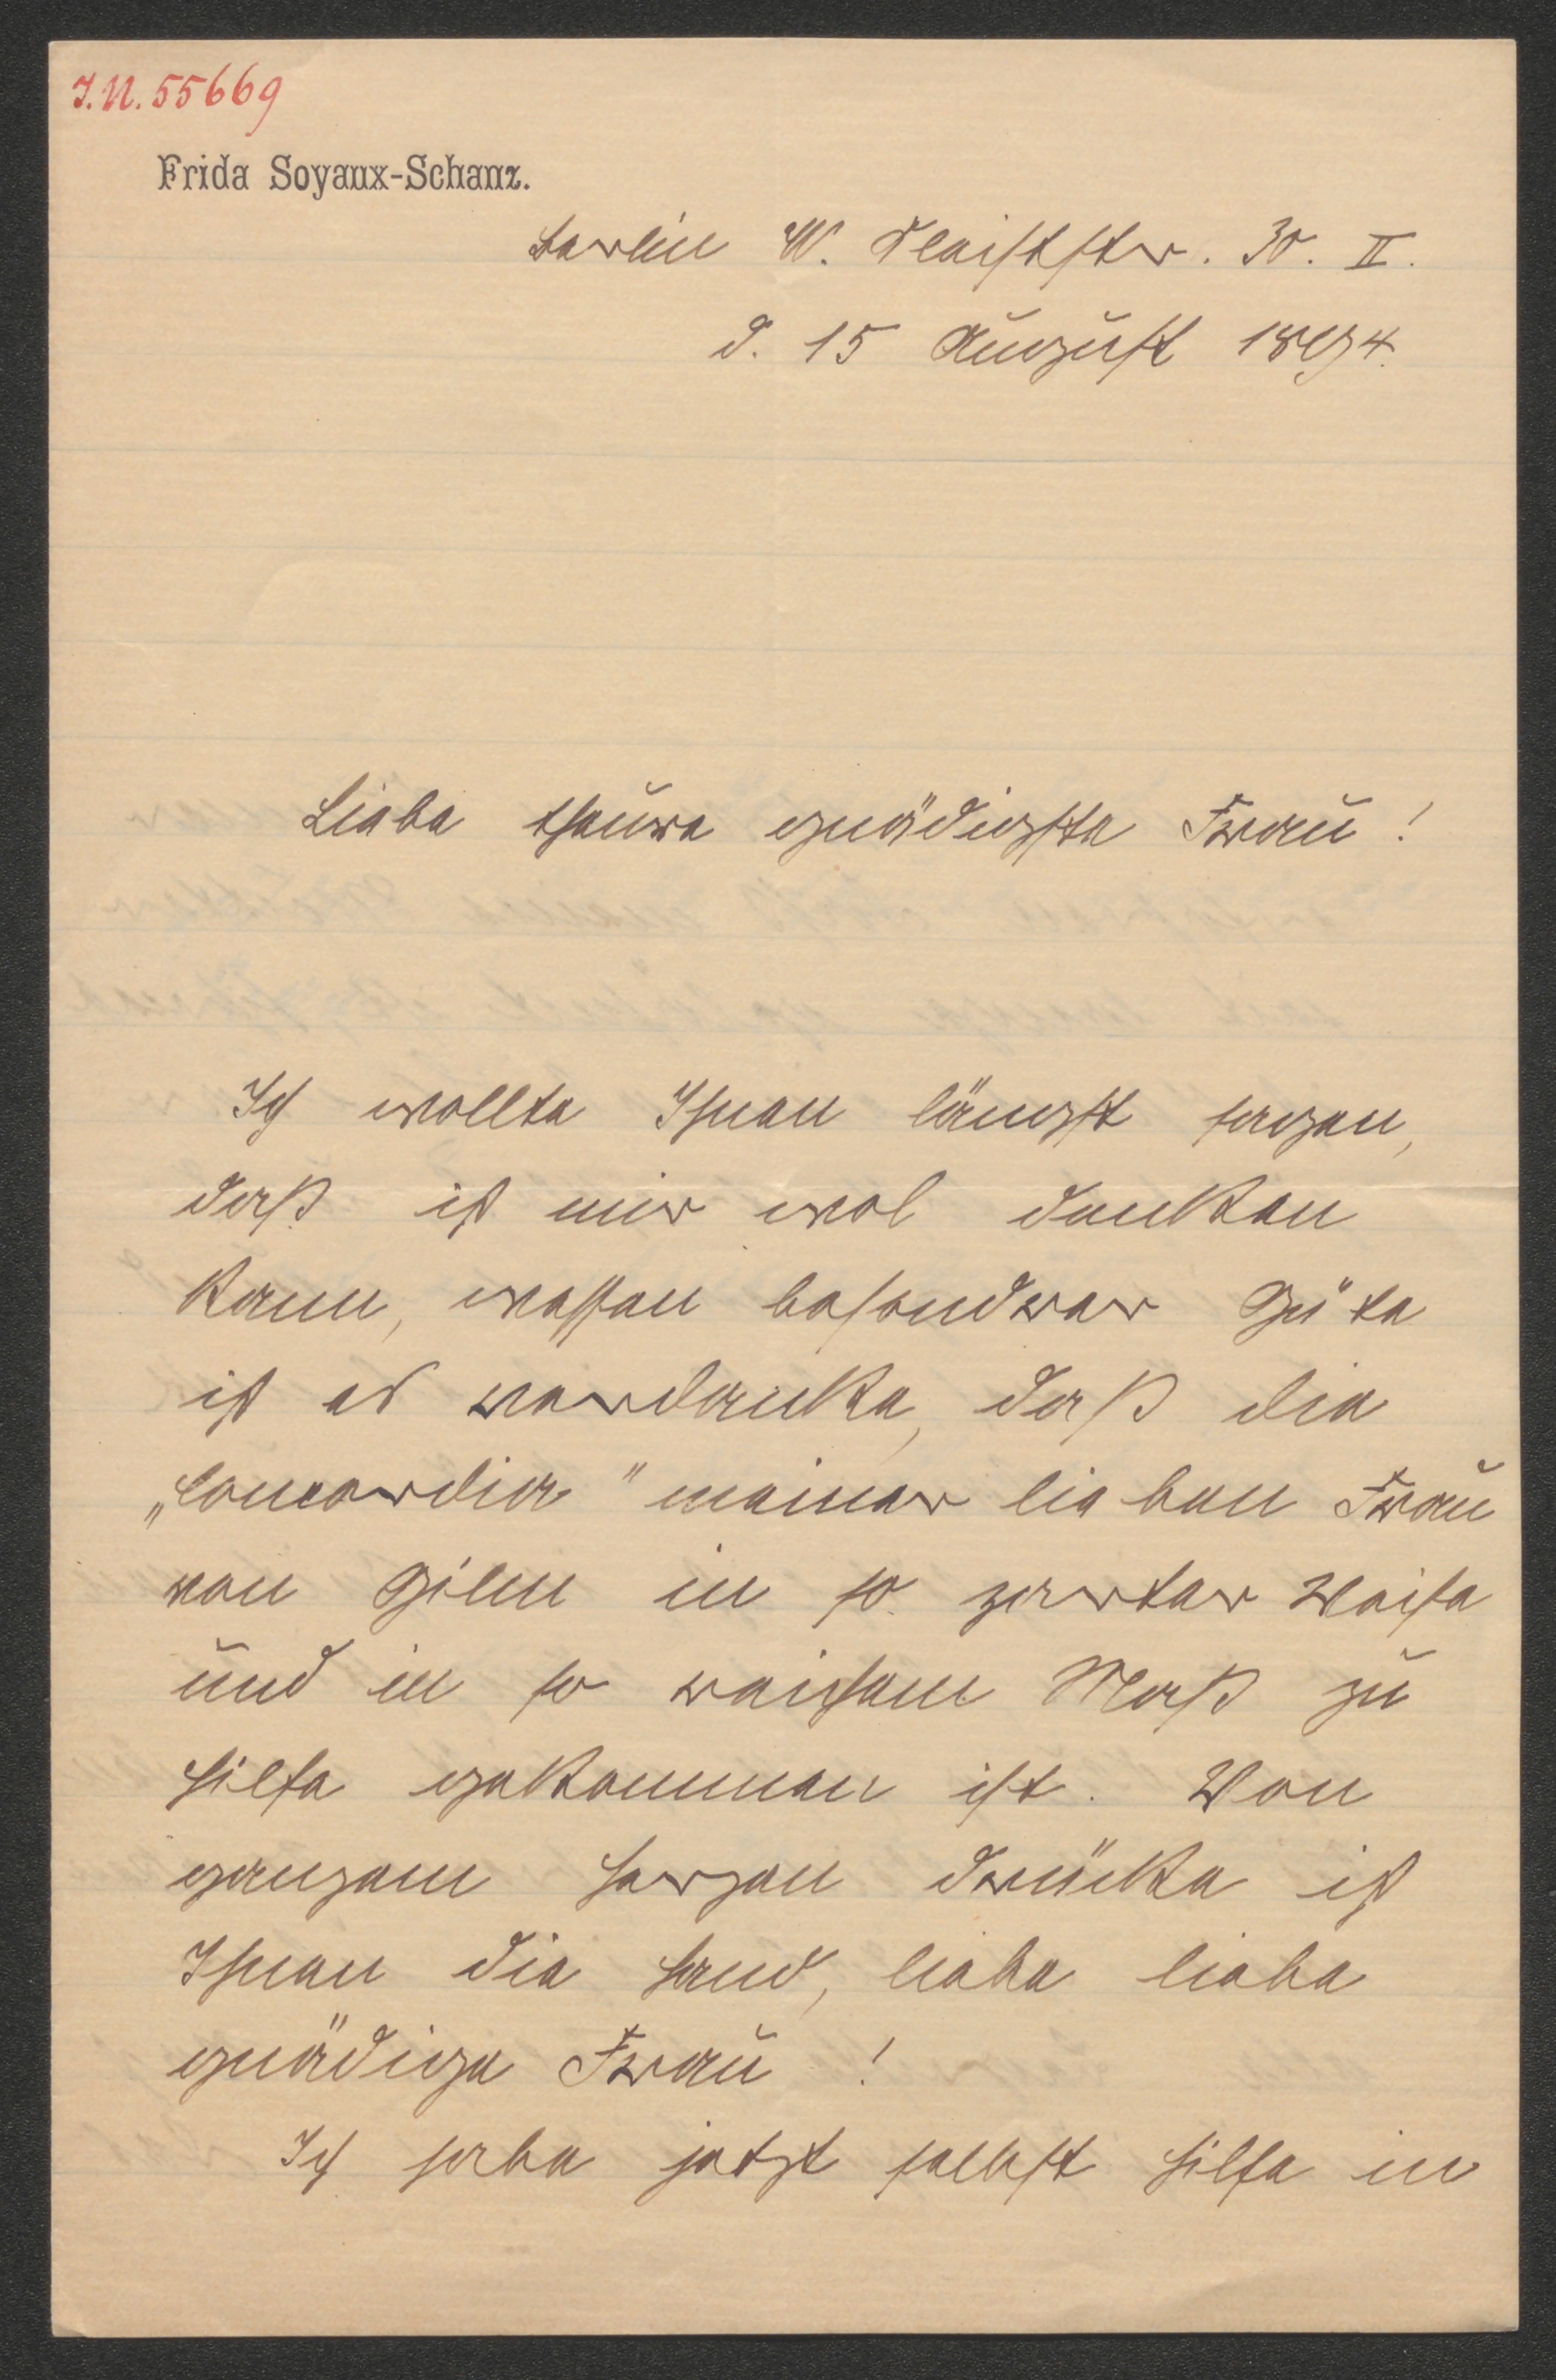 I.N. 55669
Frida Soyaux-Schanz.
Berlin W. Kleiststr. 30. II.
d. 15 August 1894.
Liebe theure gnädigste Frau!
Ich wollte Ihnen längst sagen,
daß ich mir wol denken
kann, wessen besondrer Güte
ich es verdanke, daß die
„Concordia" meiner lieben Frau
von Gilm in so zarter Weise
und in so reichem Maß zu
Hilfe gekommen ist. Von
ganzem Herzen drücke ich
Ihnen die Hand, liebe liebe
gnädige Frau!
Ich habe jetzt selbst Hilfe in